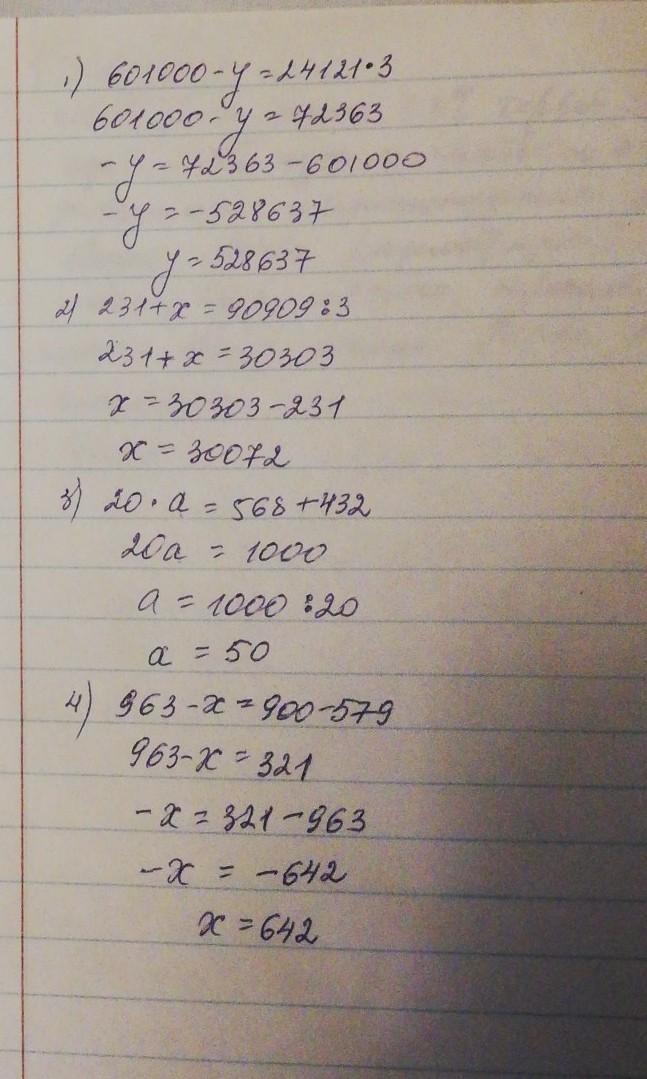 1) 601000-y=24121·3
601000-y=72363
-y=72363-601000
-y=-528637
y=528637
2) 231+x=90909:3
231+x=30303
x=30303-231
x=30072
3) 20·a=568+432
20a=1000
a=1000:20
a=50
4) 963-x=900-579
963-x=321
-x=321-963
-x=-642
x=642